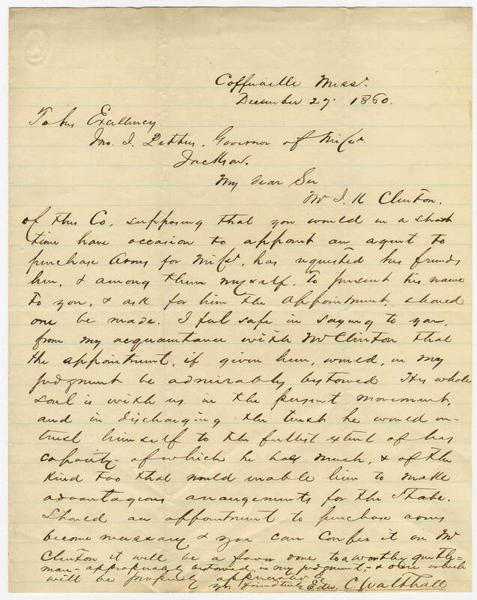 Coffeeville Missi.
December 27. 1860.
To his Excellency
Jno. J. Pettus, Governor of Missi.
Jackson.
My Dear Sir
Mr J. K Clinton,
of this Co, supposing that you would in a short
time have occasion to appoint an agent to
purchase Arms for Missi, has requested his friends
here, & among them myself, to present his name
to you, & ask for him the appointment, should
one be made. I feel safe in saying to you,
from my acquaintance with Mr Clinton that
the appointment, if given him, would, in my
judgment be admirably bestowed. His whole
soul is with us in the present movement,
and in discharging the trust he would en-
trust himself to the fullest extent of his
capacity - of which he has much, & of the
kind too that would enable him to make
advantageous arrangements for the State.
Should an appointment to purchase arms
become necessary & you can confer it on Mr
Clinton it will be a favor done to a worthy gentle-
man - appropriately bestowed, in my judgment, - & one which
will be properly appreciated.
Yr friend truly Edw. C. Walthall